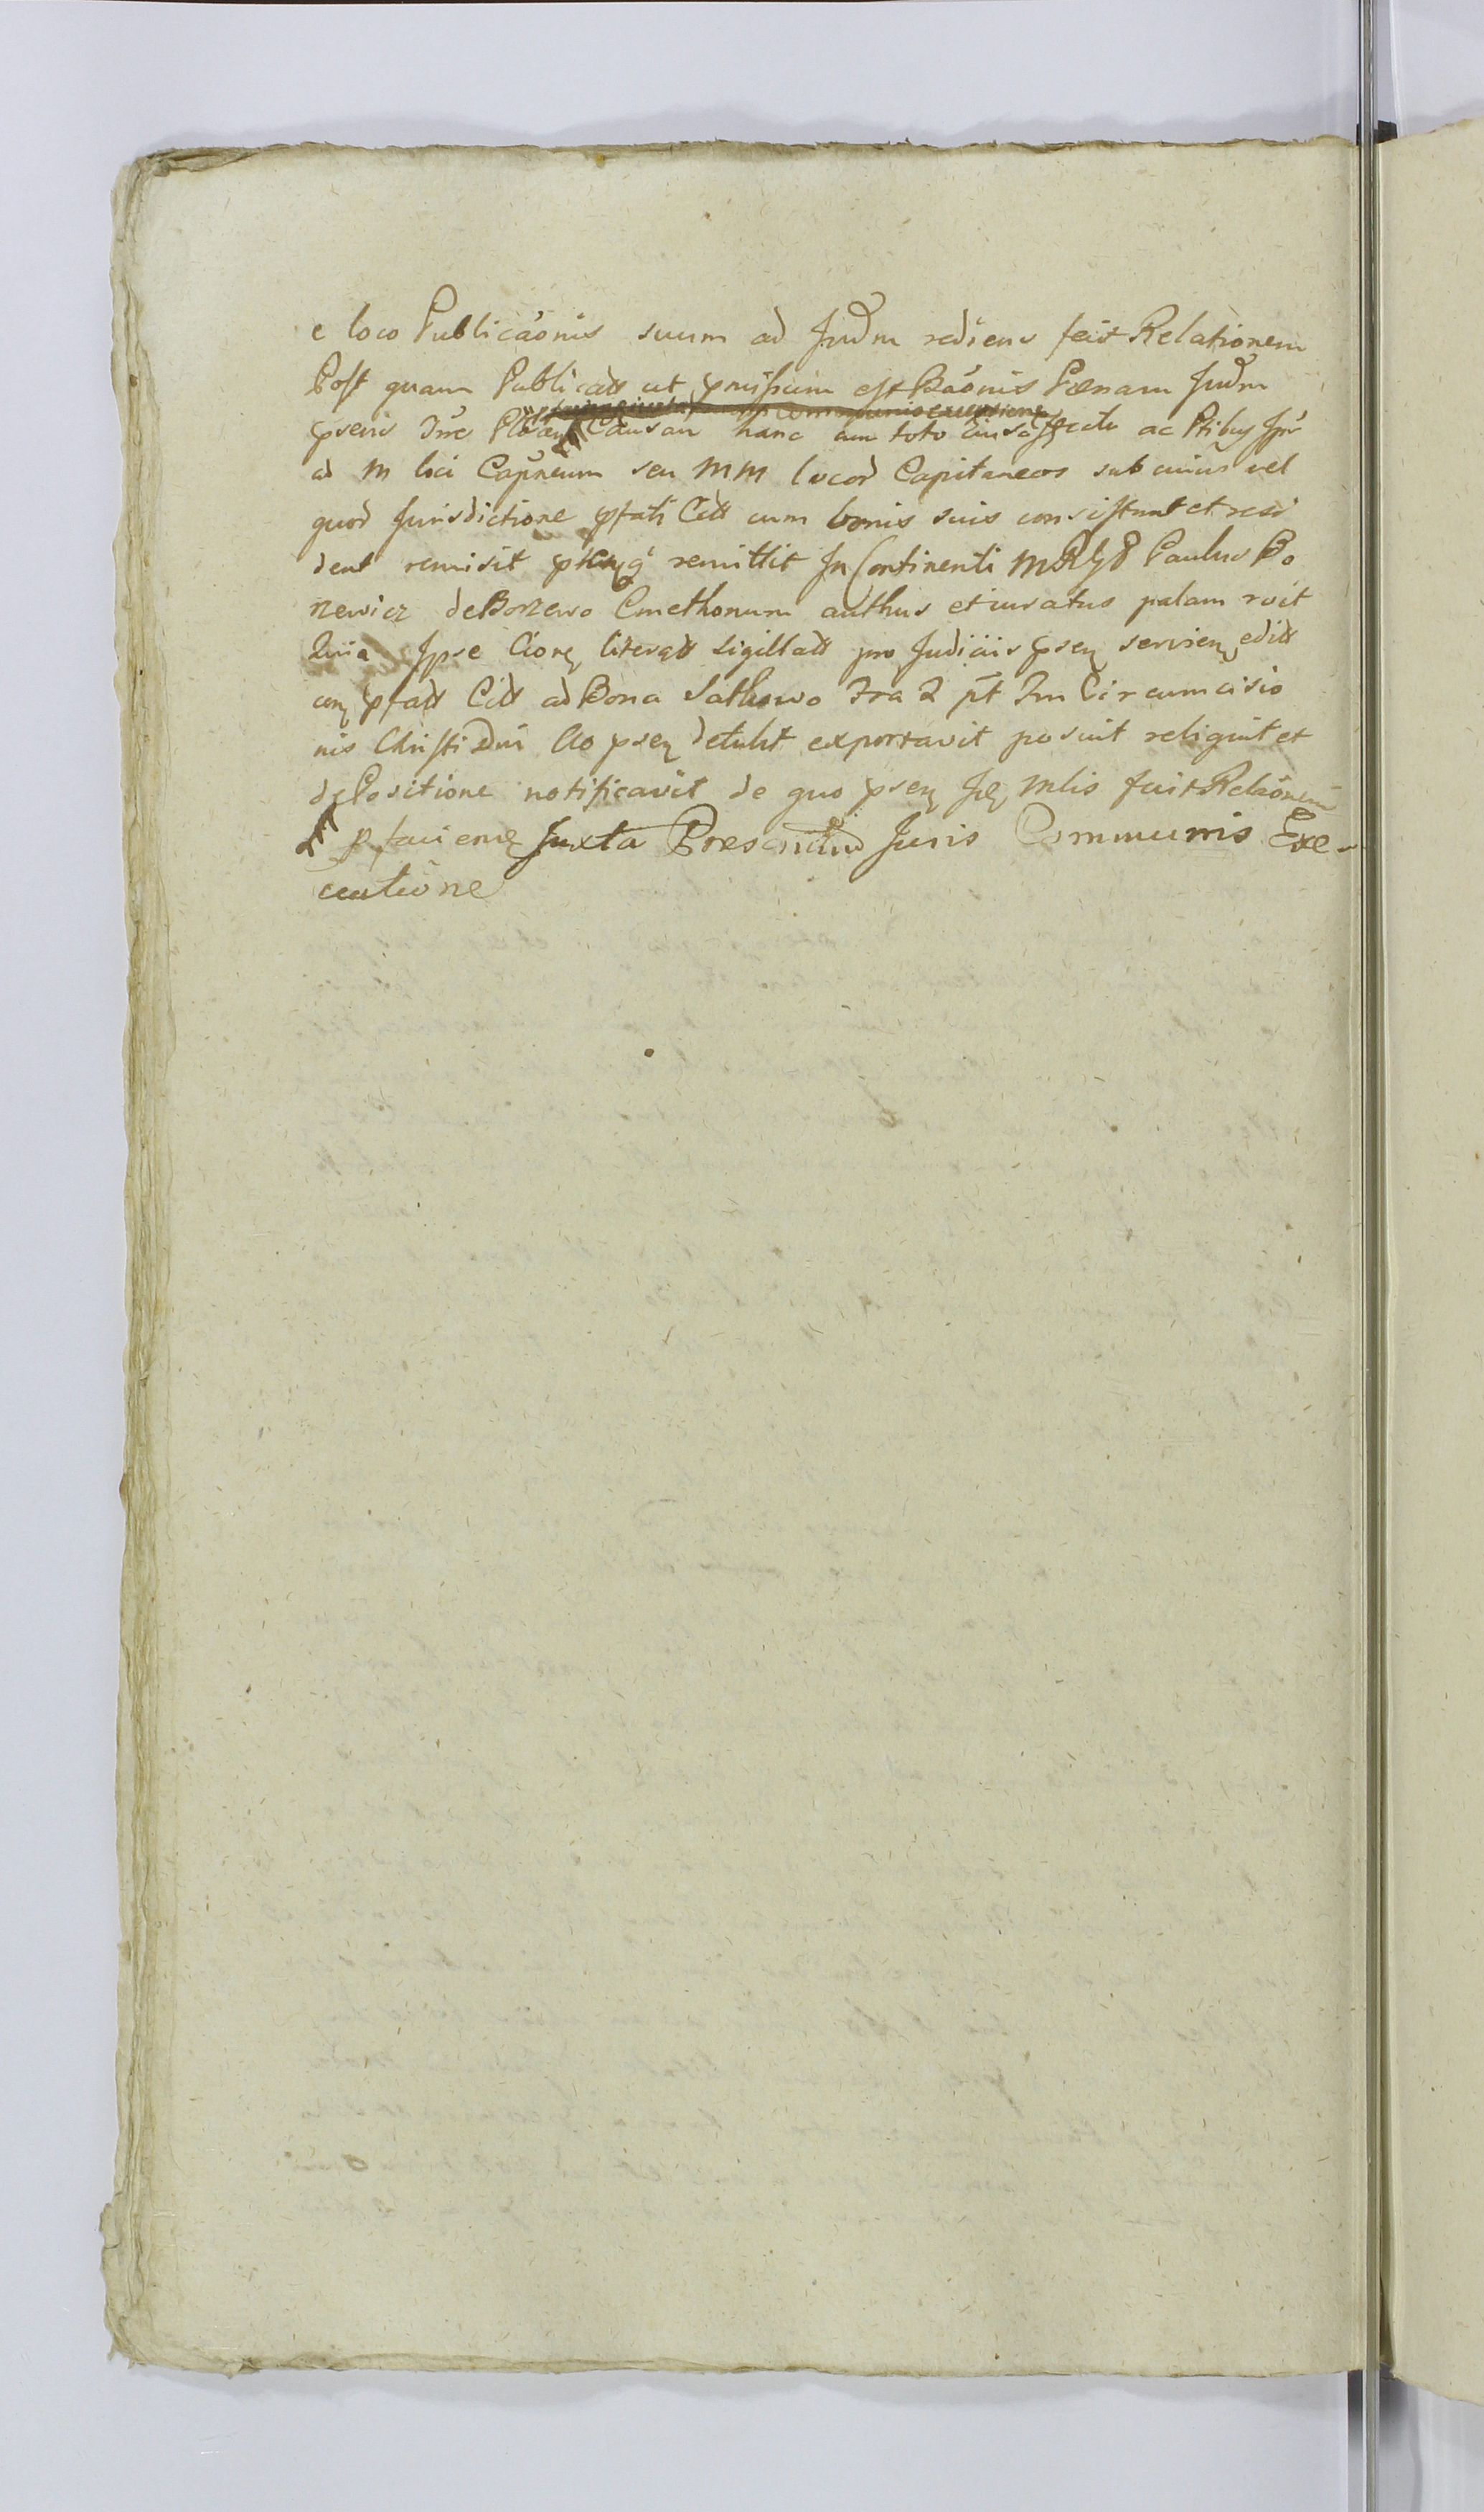 e loco Publicãonis suum ad Judm rediens fecit Relationem
Post quam Publicatt ut pmissum est Bãonis Pœnam Judm
psens Causam hanc cum toto Eius effectu ac Ptibus Ips
ad M loci Capneum seu MM locor Capitaneos sub cuius vel
quor Jurisdictione pfati Citt cum bonis suis consistunt et resi
dent remisit remittit In Continenti Paulus Bo
rzewicz de Borzewo Cmethonum authus et iuratus palam rcit
Quia Ipse Cione literatt Sigillatt pro Judiciis psen servien editt
con pfatt Citt ad Bona Sathowo Fra 2 pt Fm Circumcisio
nis Christi Dni Ao psen detulit exportavit posuit reliquit et
de Positione notificavit de quo psen fecit Relãonem
faciens Juxta Prescriptum Juris Communis Exe-
cutione